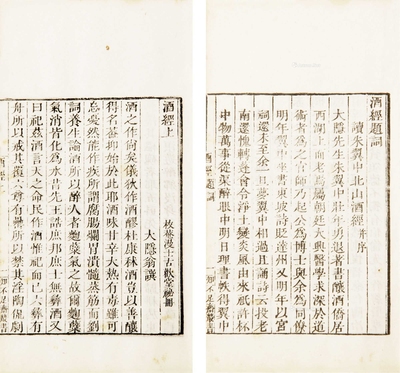 酒經題詞
讀朱翼中北山酒經 并序
大隱先生朱翼中壯年勇退著書釀酒僑居
西湖上而老焉屬朝廷大興醫學求深於道
術者為之官師乃起公為博士與余為同僚
明年翼中坐書東坡詩貶達州又明年以宮
祠還未至余一旦夢翼中相過且誦詩云投老
南還愧轉蓬會令淨土變炎風由來祇許杯
中物萬事從渠醉眼中明日理書帙得翼中
知不足齋叢書
酒經上
枝菴漫士古歡堂秘冊
大隱翁譔
酒之作尚矣儀狄作酒醪杜康秫酒豈以善釀
得名蓋抑始於此耶酒味甘辛大熱有毒雖可
忘憂然能作疾所謂腐腸爛胃潰髓蒸筋而劉
詞養生論酒所以醉人者麴糵氣之故爾麴糵
氣消皆化為水昔先王誥庶邦庶士無彝酒又
曰祀茲酒言天之命民作酒惟祀而已六彝有
舟所以戒其覆六尊有罍所以禁其淫陶侃劇
知不足齋叢書